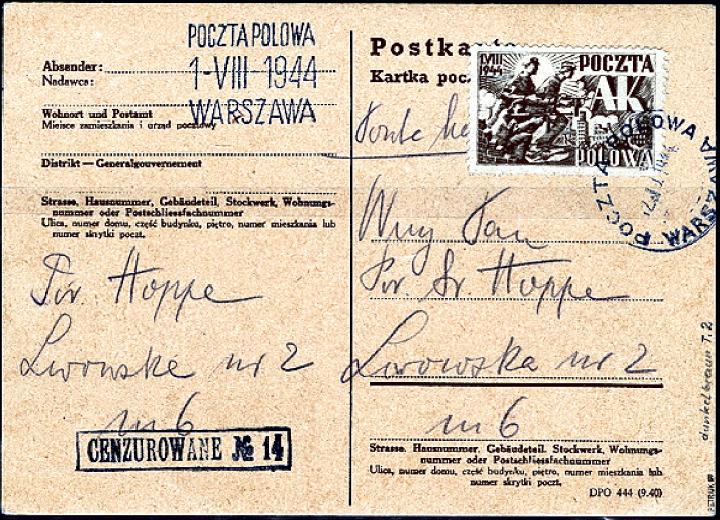 POCZTA POLOWA
1-VIII-1944
WARSZAWA
Absender:
Nadawca:
Wohnort und Postamt
Miejsce zamieszkania i urząd pocztowy
Distrikt — Generalgouvernement
Strasse, Hausnummer, Gebäudeteil, Stockwerk, Wohnungs-
nummer oder Postschliessfachnummer
Ulica, numer domu, część budynku, piętro, numer mieszkania lub
numer skrytki poczt.
Por Hoppe
Lwowske nr 2
m 6
CENZUROWANE № 14
Postkarte
Kartka poc
1.VIII
1944
POCZTA
AK
POLOWA
POCZTA POLOWA WARSZAWA
Por Hoppe
Lwowska nr 2
m 6
Strasse, Hausnummer, Gebäudeteil, Stockwerk, Wohnungs-
nummer oder Postschliessfachnummer
Ulica, numer domu, część budynku, piętro, numer mieszkania lub
numer skrytki poczt.
DPO 444 (9.40)
dunkelbraun T. 2